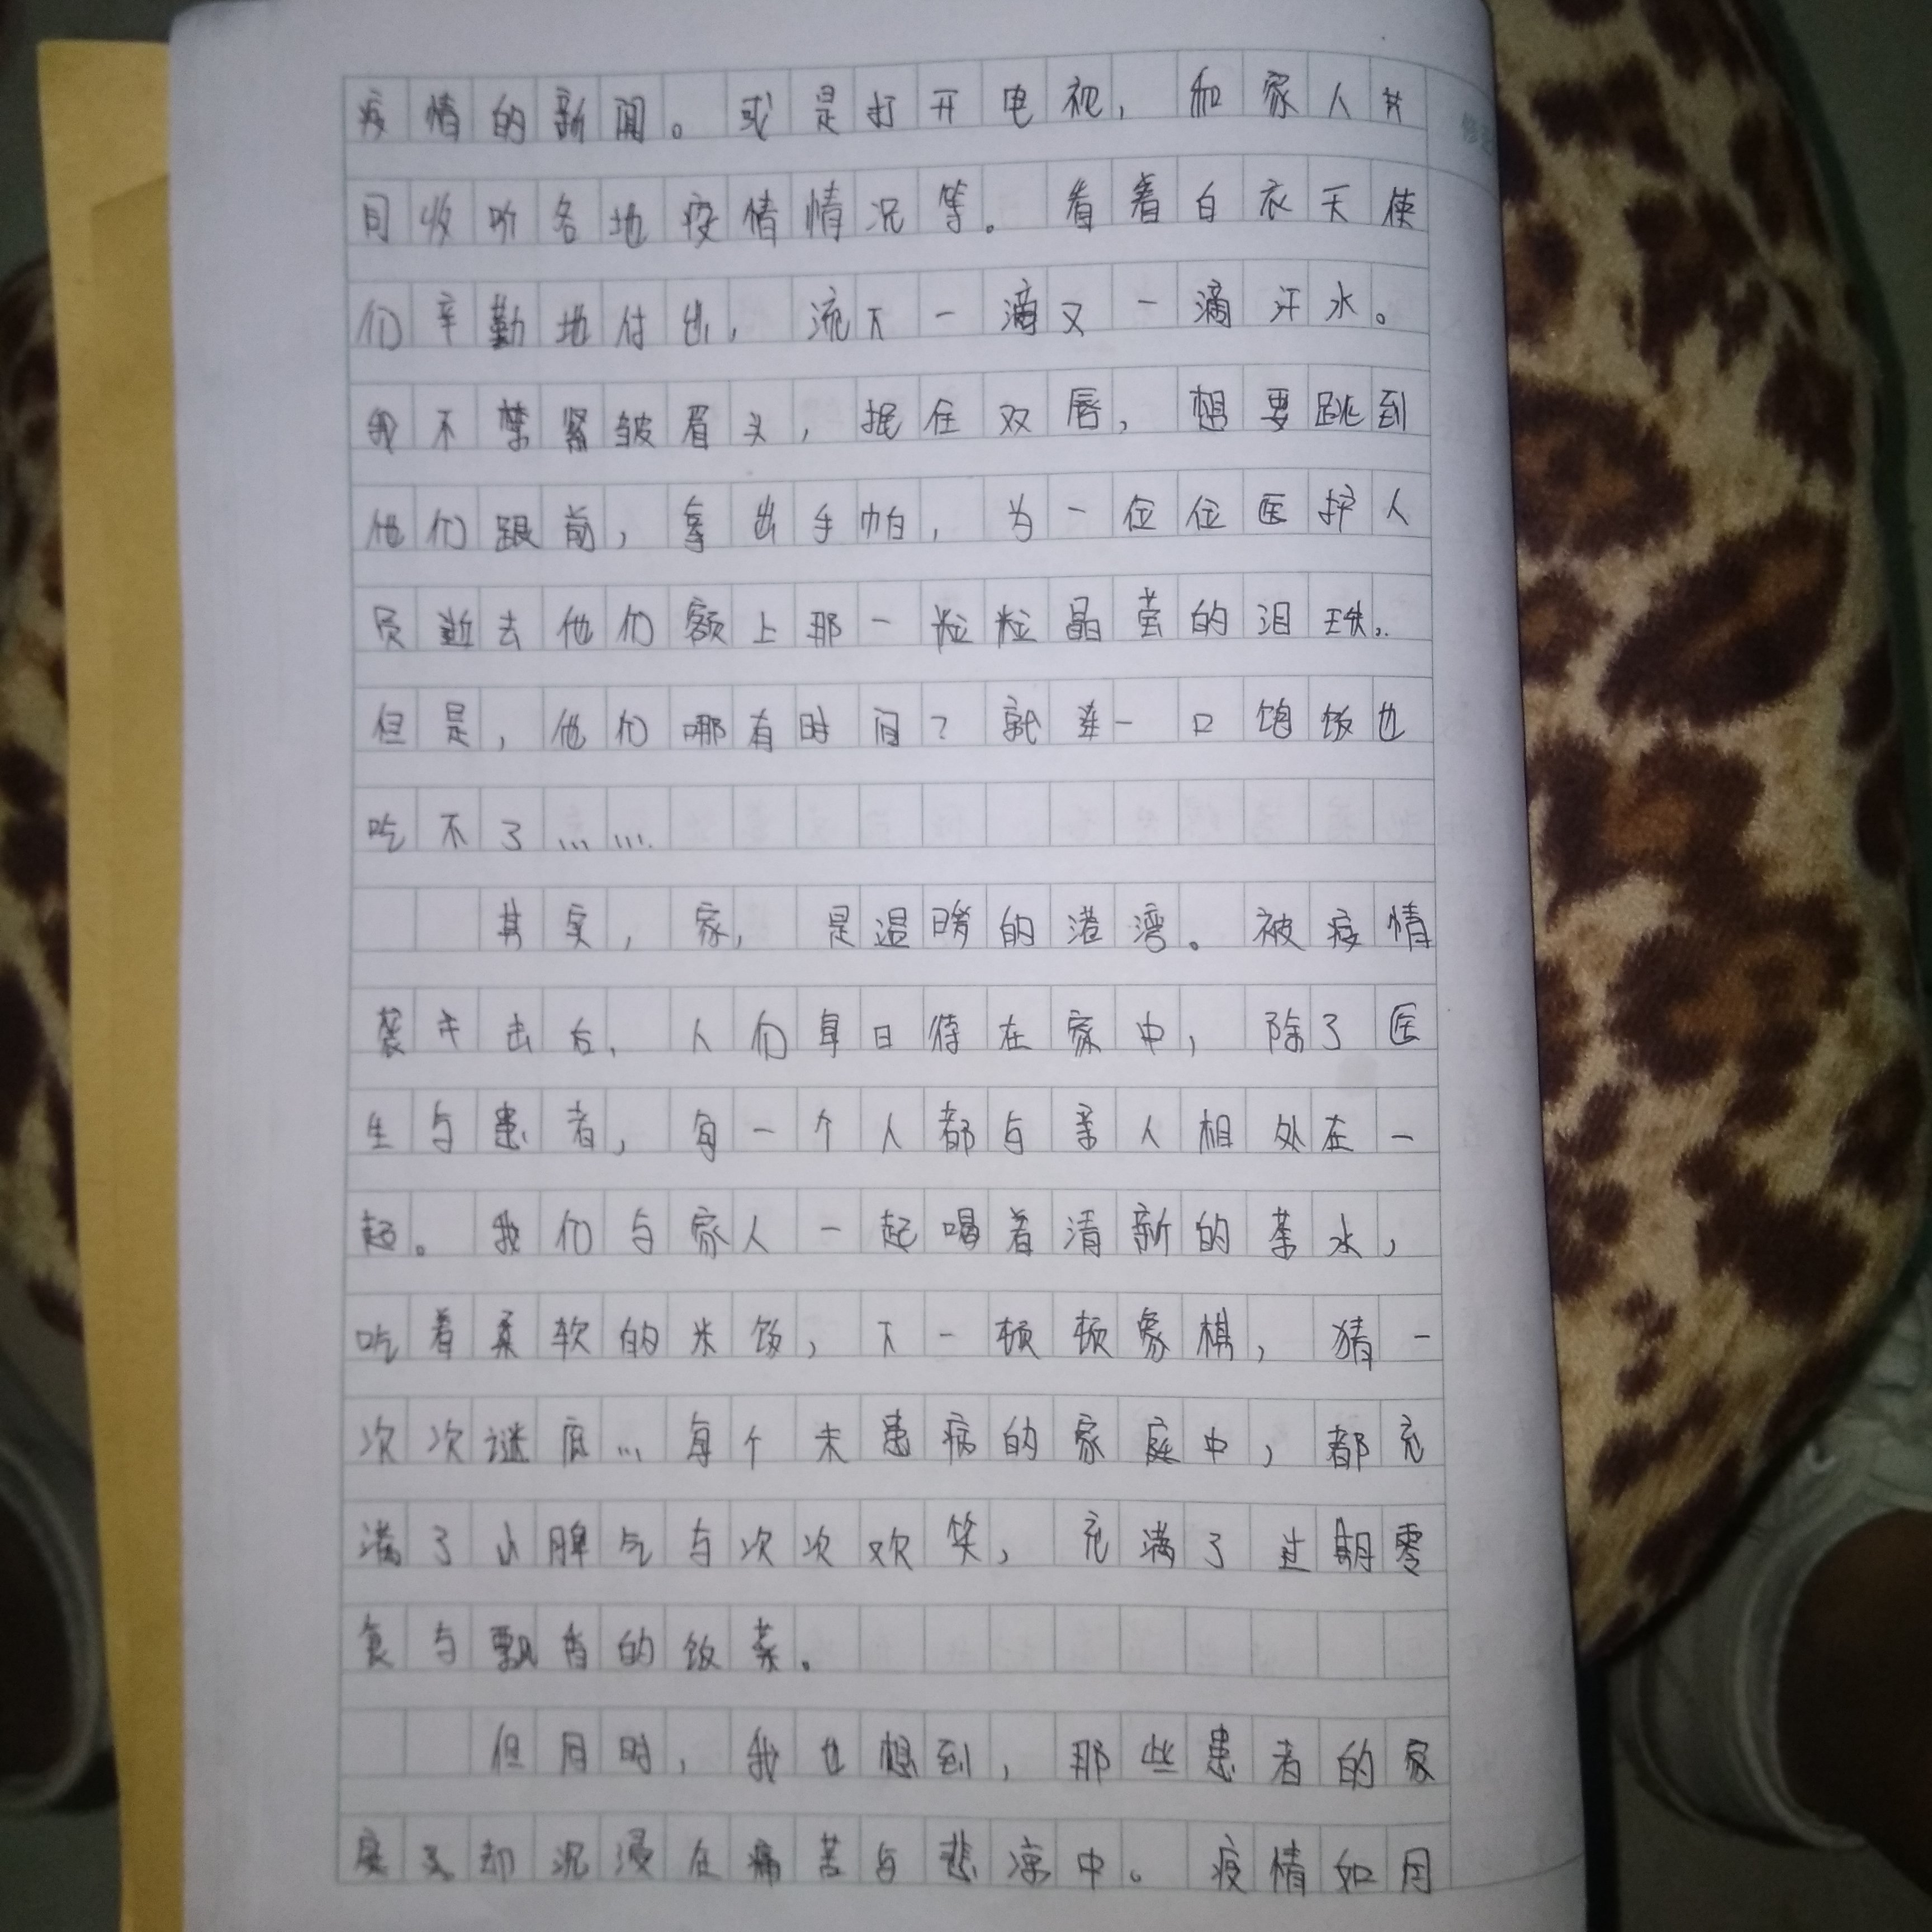 疫情的新闻。或是打开电视，和家人共
同收听各地疫情情况等。看着白衣天使
们辛勤地付出，流下一滴又一滴汗水。
我不禁紧皱眉头，抿住双唇，想要跳到
他们跟前，拿出手帕，为一位位医护人
员逝去他们额上那一粒粒晶莹的泪珠。
但是，他们哪有时间？就连一口饱饭也
吃不了……
其实，家，是温暖的港湾。被疫情
袭击后，人们每日待在家中，除了医
生与患者，每一个人都与亲人相处在一
起。我们与家人一起喝着清新的茶水，
吃着柔软的米饭，下一顿顿象棋，猜一
次次谜底…每个未患病的家庭中，都充
满了小脾气与次次欢笑，充满了过期零
食与飘香的饭菜。
但同时，我也想到，那些患者的家
庭又却沉浸在痛苦与悲凉中。疫情如同